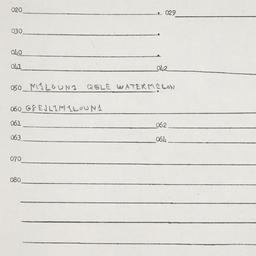 020 . 029
030 .
040 .
041 042
050 MILOUNI QELE WATERMELON
060 GFEJLIMILOUNI
061 062
063 064
070
080